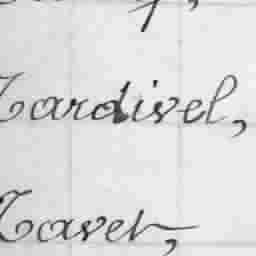 Tardivel,
Tavet,